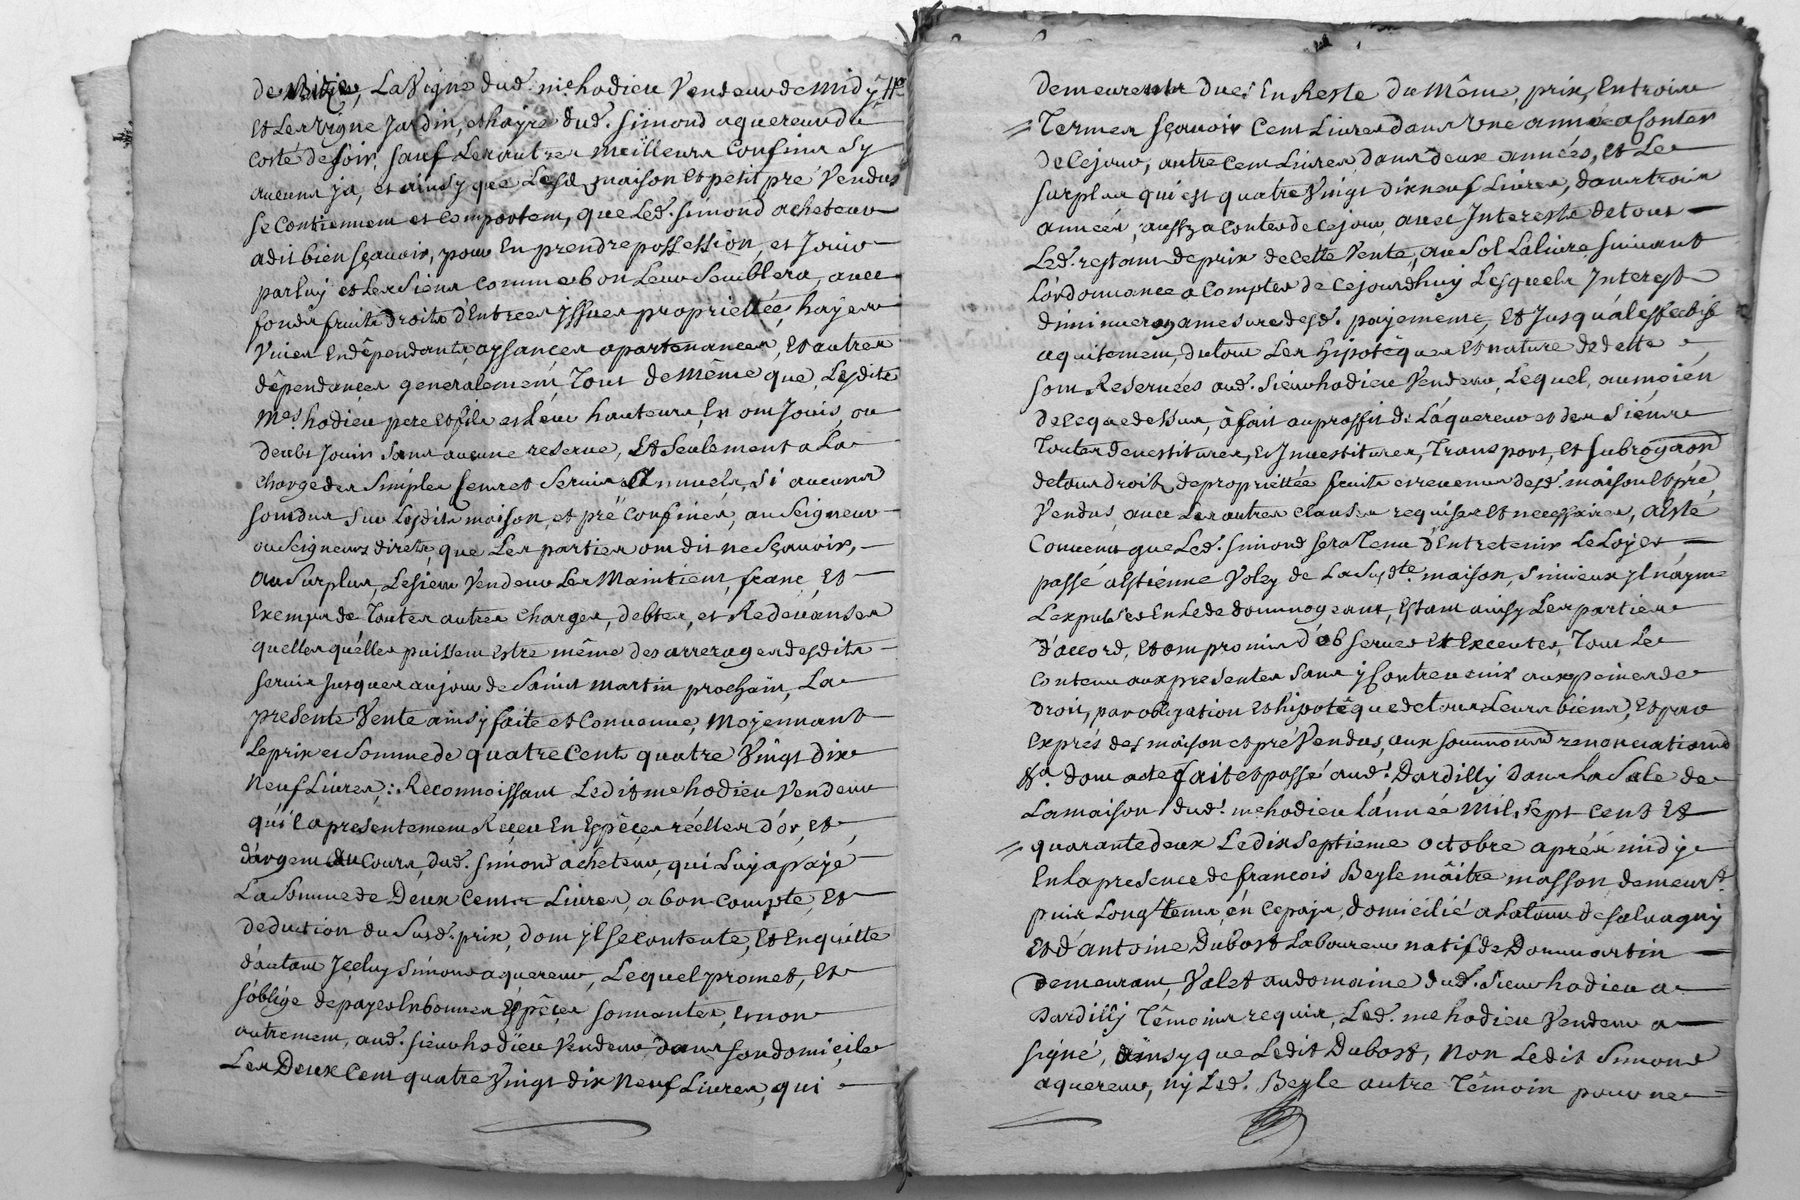 de bize, La Vigne dud. me hodieu Vendeur de midy, &
Et Les Vigne Jardin, et haÿe dud. Simond aquereur du
costé de soir, sauf Les autres meilleurs Confins sy
aucuns ja, et ainsy que Lesd maison et petit pré Vendus
se Contiennent et Comportent, que Led. Simond acheteur
a dit bien sçavoir, pour En prendre possession, et Jouir
par luy et Les Siens comme bon Leur Semblera, avec
fonds fruits droits d'Entrées yssues proprietée, haÿes
Vives En dépendants, aysances apartenances, Et autres
dépendances generalement Tout De Même que, Lesdits
Mes. hodieu pere Et fils et leur hauteurs, En ont Jouis, ou
deubt Jouir Sans aucune reserve, Et Seulement a La
charge des Simples sens et Servis Annuels, si aucuns
sont dus Sur Lesdits maison, et pré Confinés, au Seigneur
ou Seigneurs directs, que Les parties ont dit ne Sçavoir,
Au Surplus, Le sieur Vendeur Les Maintient, franc, Et
Exempt de Toutes autres charges, debtes, et Redevanses
quelles qu'elles puissent estre même des arrerages desdits
servis Jusques au jour de Saint Martin prochain, La
presente Vente ainsÿ faite et Convenue, Moyennant
Le prix et Somme de quatre Cents quatre Vingt dix
Neuf Livres,: Reconnoissant Ledit me hodieu Vendeur
qu'il a presentement Reçeu En Espêçes réélles d'or, Et
d'argent au Cours, dud. Simond acheteur, qui Luy a paÿé
La Somme de Deux Cents Livres, a bon compte, Et
deduction du Susd. prix, dont yl se contente, Et En quitte
d'autant Jçeluy Simond aquereur, Lequel promet, Et
s'oblige de payer En bonnes Espêçes sonnantes, et non
autrement, aud. sieur hodieu Vendeur dans son domicile
Les Deux Cent quatre Vingt dix Neuf Livres, qui
Demeurent dues En Reste du Même, prix, En trois
Termes sçavoir Cent Livres dans Une année a Conter
de Ce jour, autre Cent Livres dans deux années, Et Le
surplus qui est quatre Vingt dix neuf Livres, dans trois
années, aussy a Conter de Ce jour, avec Interests de tout
Led. restant de prix de cette Vente, au Sol La livre suivant
L'ordonnance a Compter de Ce jourdhuy Lesquels Interest
diminueront a mesure desd. payements, Et Jusqu'a l'effectif
aquitement, du tout Les hipotéques Et nature de dette
sont Reservées aud. Sieur hodieu Vendeur, Lequel, au moïen
de Ce que dessus, à fait au proffit de L'aquereur et des Siens
Toutes devestitures, Et Investitures, Transport, Et subrogaõn
de tous droits de propriettée fruits et revenus desd. maison Et pré
Vendus, avec Les autres clauses requises Et necessaires, a Esté
Convenu que Led. Simond sera Tenu d'Entretenir Le Loyer
passé a Estienne Voley de La Susdte. maison, si mieux yl n'ayme
L'expulser En Le dedommageant, Estant ainsy Les parties
d'accord, Et ont promis d'observer Et Executer, Tout Le
Contenu aux presentes Sans y Contrevenir aux peines de
Droit, par obligation Et hipotéque de tous Leurs biens, Et par
Exprés des maison et pré Vendus, aux soumons renonciations
&a. dont acte fait et passé aud. Dardilly Dans La Sale de
La maison dud. me hodieu L'année Mil, Sept Cent Et
quarante deux Le dix Septieme octobre aprés midy
En la presence de françois Beyle mâitre masson demeurt.
puis Long tems, en Ce païs, domicilié a La tour de Salvagny
Et d'antoine Dubost Laboureur natif de Dommartin
Demeurant, Valet au domaine dud. Sieur hodieu a
Dardilly Témoins requis, Led. me hodieu Vendeur a
signé, ainsy que Ledit Dubost, Non Ledit Simond
aquereur, ny Led. Beyle autre Témoin pour ne